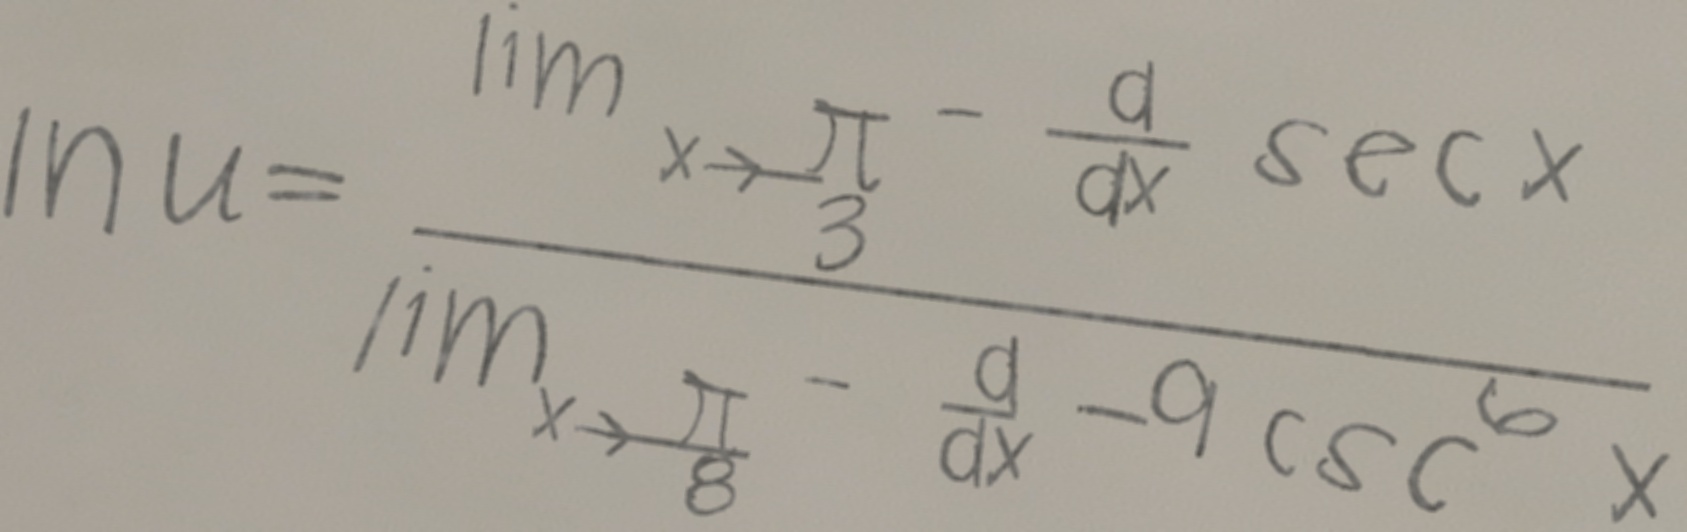 \ln u = \frac{\lim_{x \to \frac{\pi}{3}^-} \frac{d}{dx} \sec x}{\lim_{x \to \frac{\pi}{8}^-} \frac{d}{dx} -9 \csc^6 x}